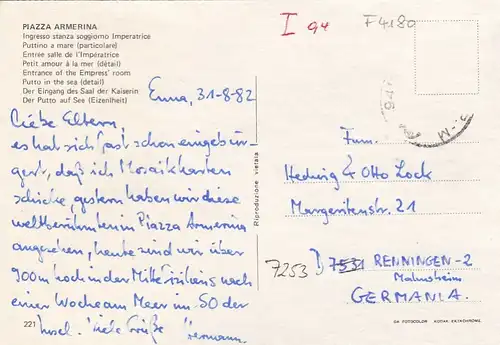 PIAZZA ARMERINA
Ingresso stanza soggiorno Imperatrice
Puttino a mare (particolare)
Entrée salle de l'Impératrice
Petit amour à la mer (détail)
Entrance of the Empress' room
Putto in the sea (detail)
Der Eingang des Saal der Kaiserin
Der Putto auf See (Eizenlheit)
Enna, 31-8-82
Liebe Eltern,
es hat sich fast schon eingebür-
gert, daß ich Mosaikkarten
schicke, gestern haben wir diese
weltberühmten in Piazza Armerina
angesehen, heute sind wir über
900m hoch in der Mitte Siziliens nach
einer Woche am Meer im SO der
Insel. Viele Grüße Hermann
221
Riproduzione vietata
I 94
F4180
Fam.
Hedwig & Otto Lock
Margeritenstr. 21
7253 D 7531 RENNINGEN-2
Malmsheim
GERMANIA
GA FOTOCOLOR KODAK EKTACHROME